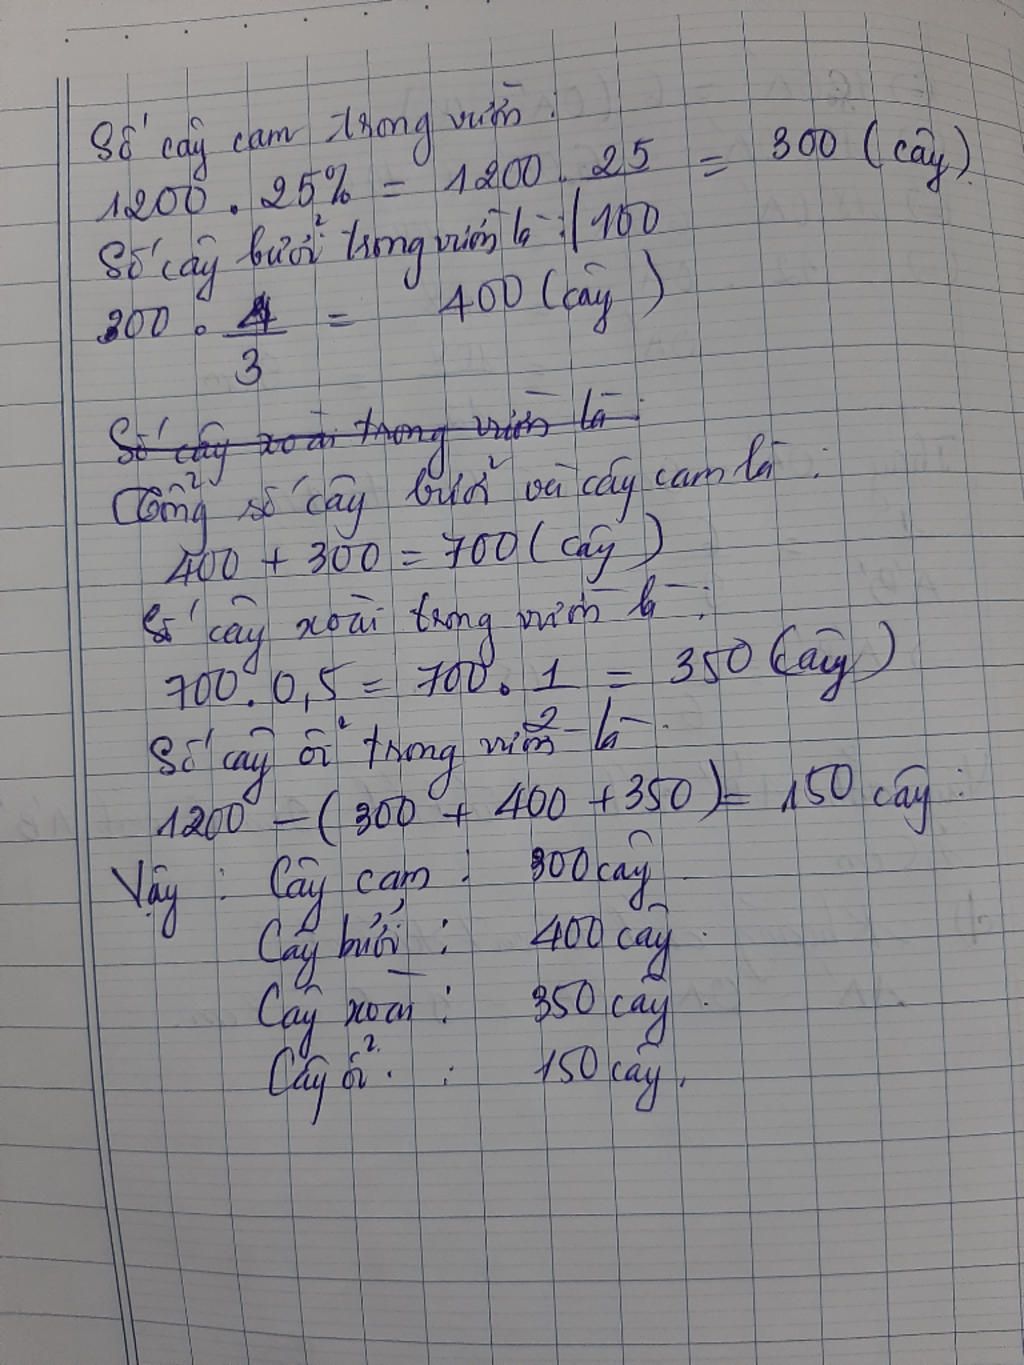 Số cây cam trong vườn :
1200 . 25% = 1200 . 25/100 = 300 (cây)
Số cây bưởi trong vườn là :
300 . 4/3 = 400 (cây)
Số cây xoài trong vườn là :
Tổng số cây bưởi và cây cam là :
400 + 300 = 700 (cây)
Số cây xoài trong vườn là :
700 . 0,5 = 700 . 1/2 = 350 (cây)
Số cây ổi trong vườn là :
1200 - ( 300 + 400 + 350 ) = 150 cây .
Vậy : Cây cam : 300 cây
Cây bưởi : 400 cây .
Cây xoài : 350 cây .
Cây ổi . : 150 cây .